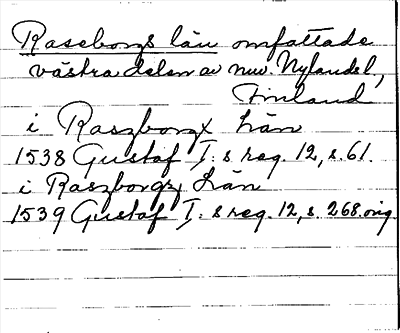 Raseborgs län omfattade
västra delen av nuv. Nylandsl,
Finland
i Raszborgx Län
1538 Gustaf I:s reg. 12, s. 61.
i Raszborgx Län
1539 Gustaf I:s reg. 12, s. 268. orig.